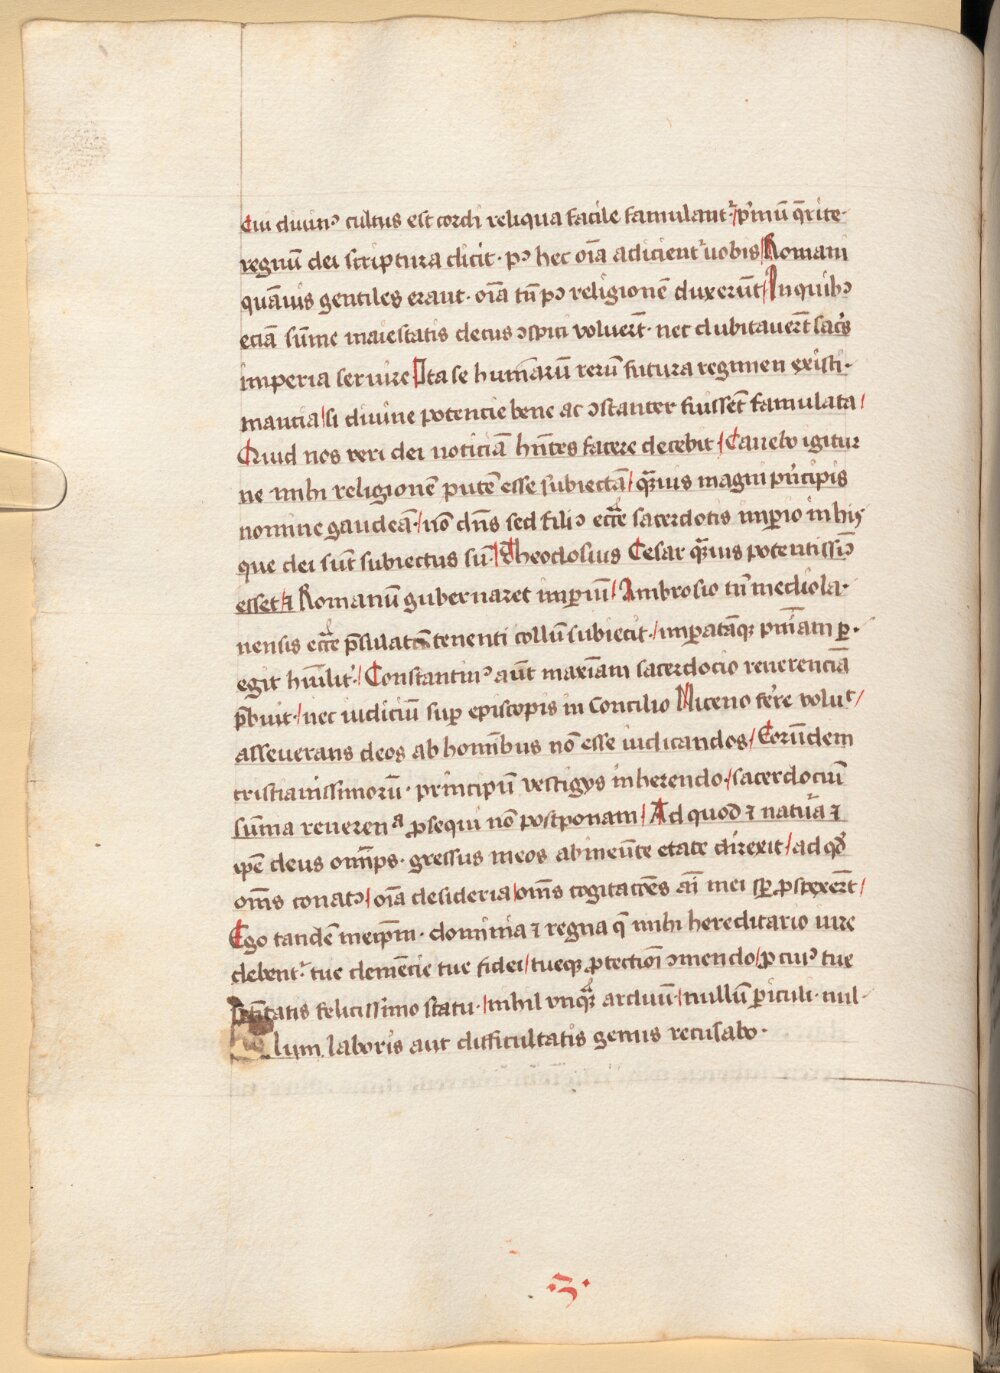 Cui diuinꝰ cultus est cordi reliqua facile famulant᷑ / pͥmū q̄rite·
regnū dei scriptura dicit · pꝰ hec oīa adicient᷑ uobis / Romani
quāuis gentiles erant · oīa tn̄ pꝰ religionē duxerūt / In quibꝰ
eciā sūme maiestatis decus ↄspici voluer̄t · nec dubitauer̄t sacͥs
imperia seruire / Ita se humanarū rerū futura regimen existi·
mantia / si diuine potencie bene ac ↄstanter fuissēt famulata /
Quid nos veri dei noticiā hn̄tes facere decebit / Cauebo igitur
ne mihi religionē putē esse subiectā / qͣuis magni pͥncipis
nomine gaudeā · / nō dn̄s sed filiꝰ ecc̄e sacerdotis imꝑio in his
que dei sūt subiectus sū · / Theodosius Cesar qͣuis potentissīꝰ
esset / ⁊ Romanū gubernaret imꝑiū / Ambrosio tn̄ mediola·
nensis ecc̄e p̄sulatū tenenti collū subiecit · / imꝑatāqꝫ pn̄iam ꝑ·
egit humīlit᷑ / Constantinꝰ aūt maxīam sacerdocio reuerenciā
p̄buit · / nec iudiciū suꝑ episcopis in Concilio Niceno fer̄e voluͭ /
asseuerans deos ab homībus nō esse iudicandos / Eorūdem
cristianissimorū · principū vestigys inherendo · / sacerdociū
sūma reuerenͣ ꝓsequi nō postponam / Ad quod ⁊ natura ⁊
ipē deus omn̄ps · gressus meos ab ineūte etate direxit / ad qđ
om̄s conatꝰ / oīa desideria / om̄s cogitacōes aī mei sꝑ ꝓspexer̄t /
Ego tandē meip̄m · dominia ⁊ regna q̄ mihi hereditario iure
debent᷑ tue clemēcie tue fidei / tueqꝫ ꝓtectioī ↄmendo / ꝓ cuiꝰ tue
sc̄titatis felicissimo statu · / nihil vnqͣ arduū / nullū ꝑiculi · nul·
lum laboris aut difficultatis genus recusabo ·
·3·